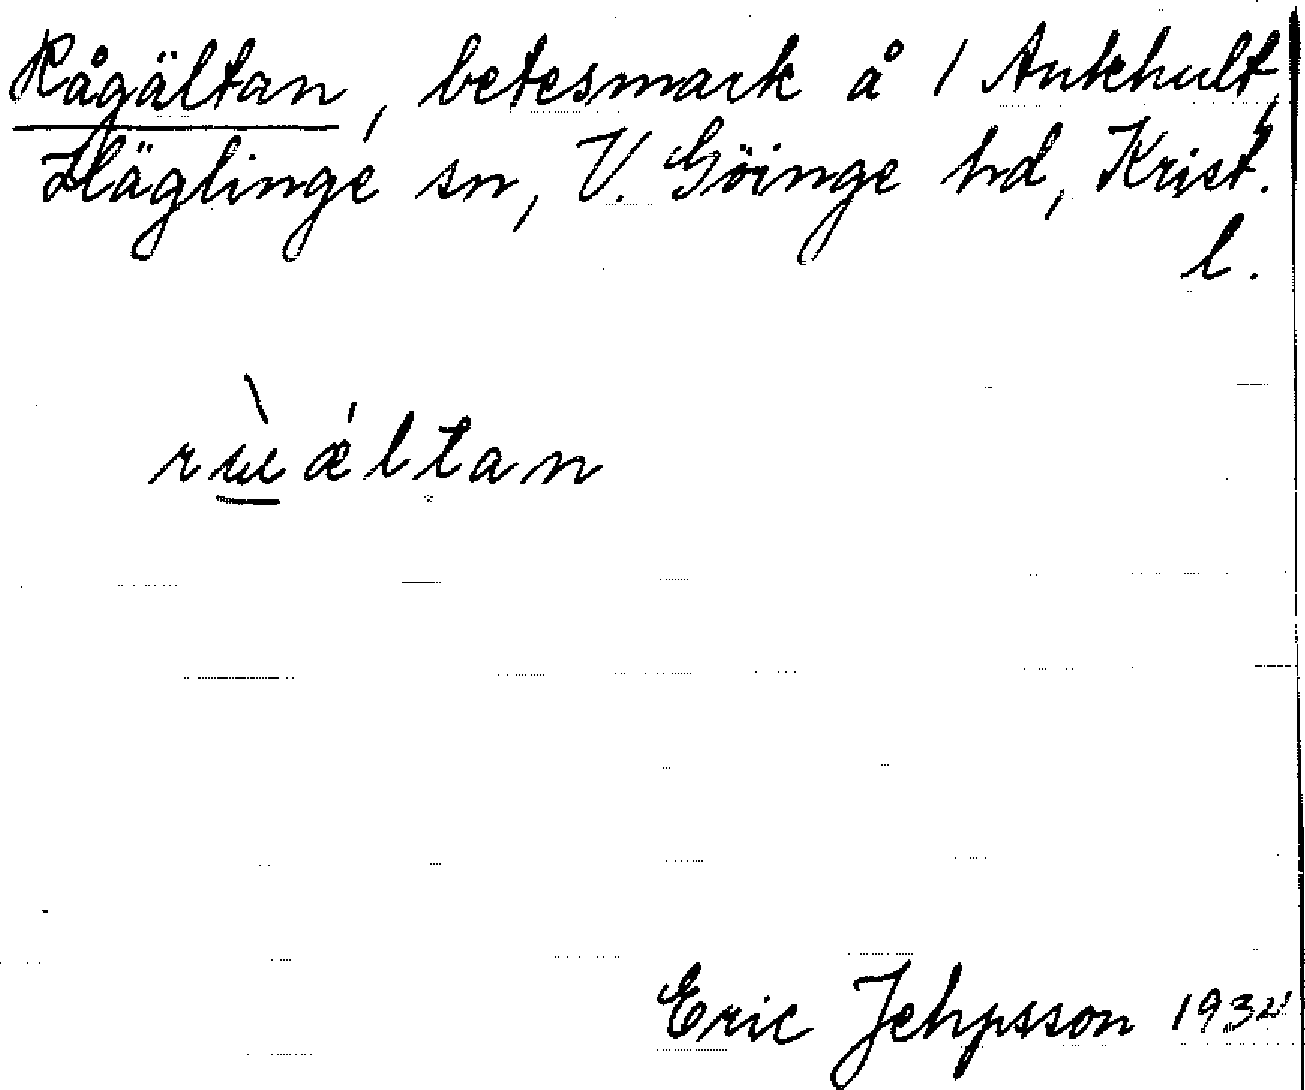 Rågältan, betesmark å 1 Ankhult,
Häglinge sn, V. Göinge hd, Krist.
l.
Eric Jehpsson